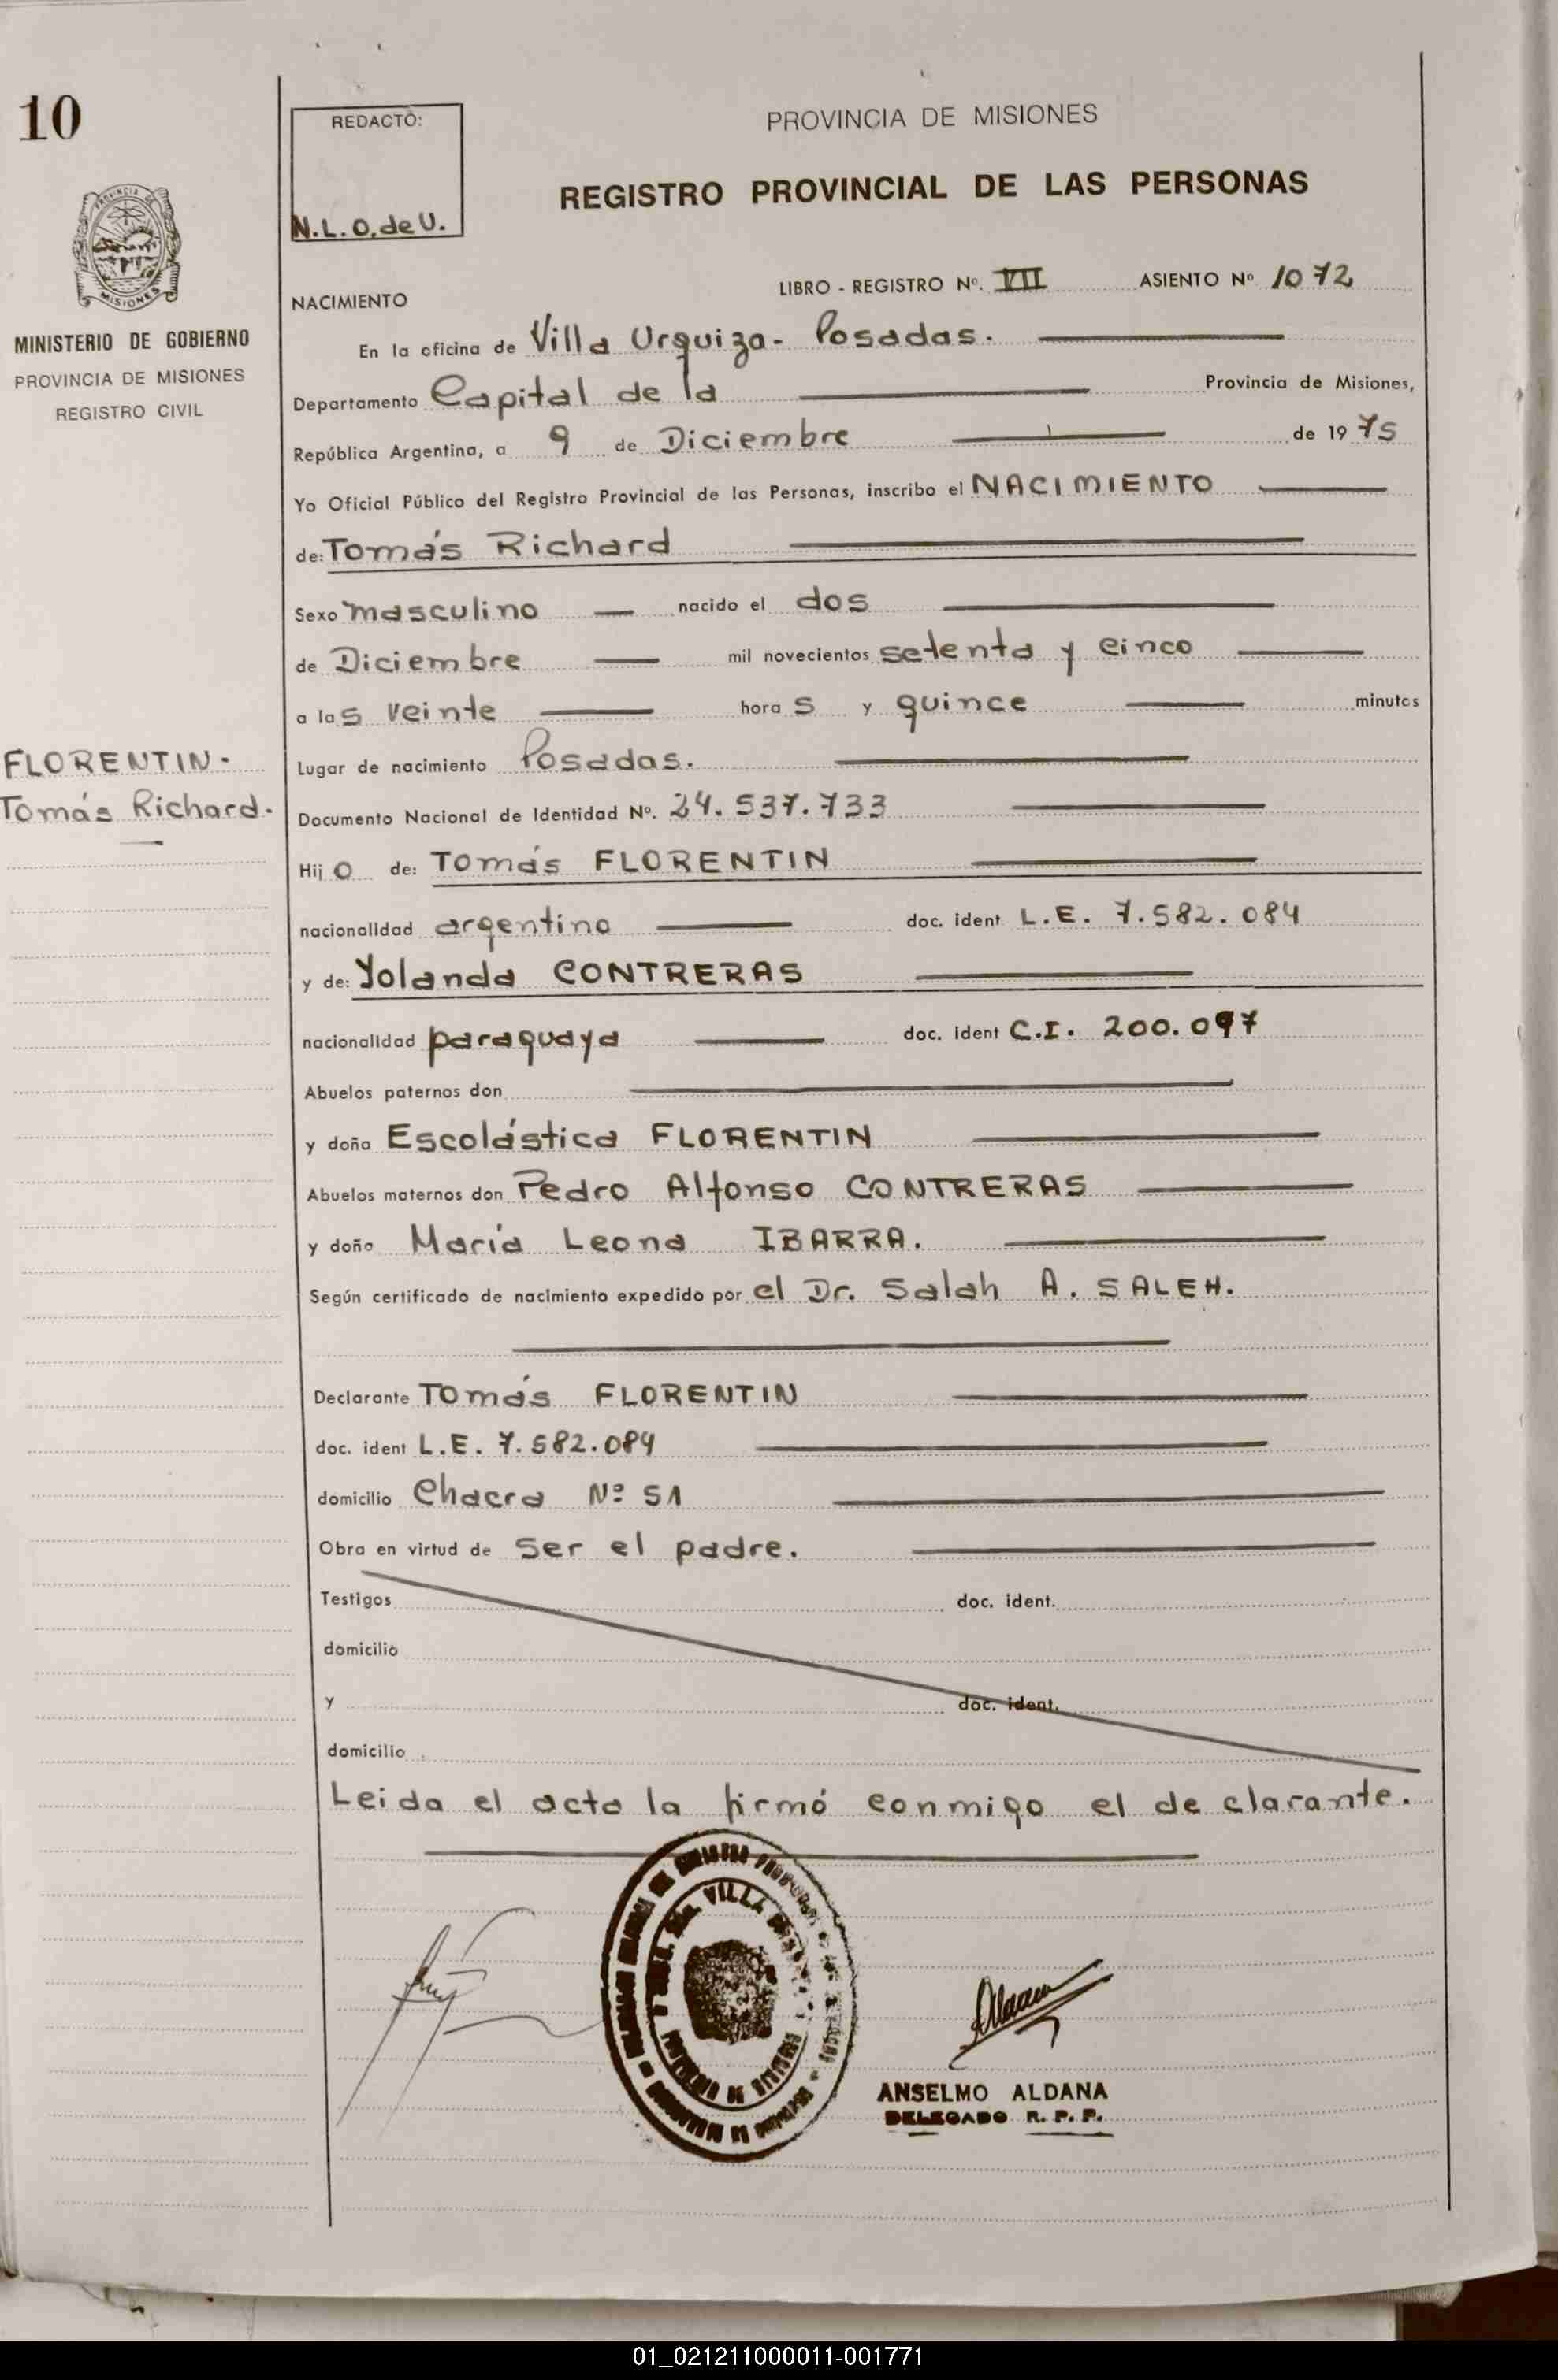 10
REDACTÓ:
N.L.O. de U.
PROVINCIA DE MISIONES
REGISTRO PROVINCIAL DE LAS PERSONAS
MISIONES
MINISTERIO DE GOBIERNO
PROVINCIA DE MISIONES
REGISTRO CIVIL
LIBRO - REGISTRO Nº. VII ASIENTO Nº 1072
NACIMIENTO
En la oficina de Villa Urquiza - Posadas.
Departamento Capital de la Provincia de Misiones,
República Argentina, a 9 de Diciembre de 1975
Yo Oficial Público del Registro Provincial de las Personas, inscribo el NACIMIENTO
de: Tomás Richard
Sexo masculino nacido el dos
de Diciembre mil novecientos setenta y cinco
a las veinte horas y quince minutos
FLORENTIN.
Tomás Richard.
Lugar de nacimiento Posadas.
Documento Nacional de Identidad Nº. 24.537.733
Hijo de: Tomás FLORENTIN
nacionalidad argentino doc. ident L.E. 7.582.084
y de: Yolanda CONTRERAS
nacionalidad paraguaya doc. ident C.I. 200.097
Abuelos paternos don
y doña Escolástica FLORENTIN
Abuelos maternos don Pedro Alfonso CONTRERAS
y doña María Leona IBARRA.
Según certificado de nacimiento expedido por el Dr. Salah A. SALEH.
Declarante Tomás FLORENTIN
doc. ident L.E. 7.582.084
domicilio Chacra Nº 51
Obra en virtud de ser el padre.
Testigos doc. ident.
domicilio
y doc. ident.
domicilio
Leida el acta la firmó conmigo el declarante.
VILLA
ANSELMO ALDANA
DELEGADO R. P. P.
01_021211000011-001771